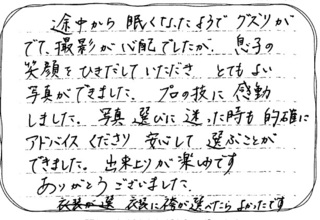 途中から 眠くなったようで グズリが
でて、撮影が心配でしたが、息子の
笑顔をひきだしていただき とてもよい
写真ができました。 プロの技に 感動
しました。写真 選びに 迷った時も 的確に
アドバイス くださり 安心して 選ぶことが
できました。出来上りが楽しみです
ありがとうございました。
衣装が選 衣装に袴が選べたら よかったです